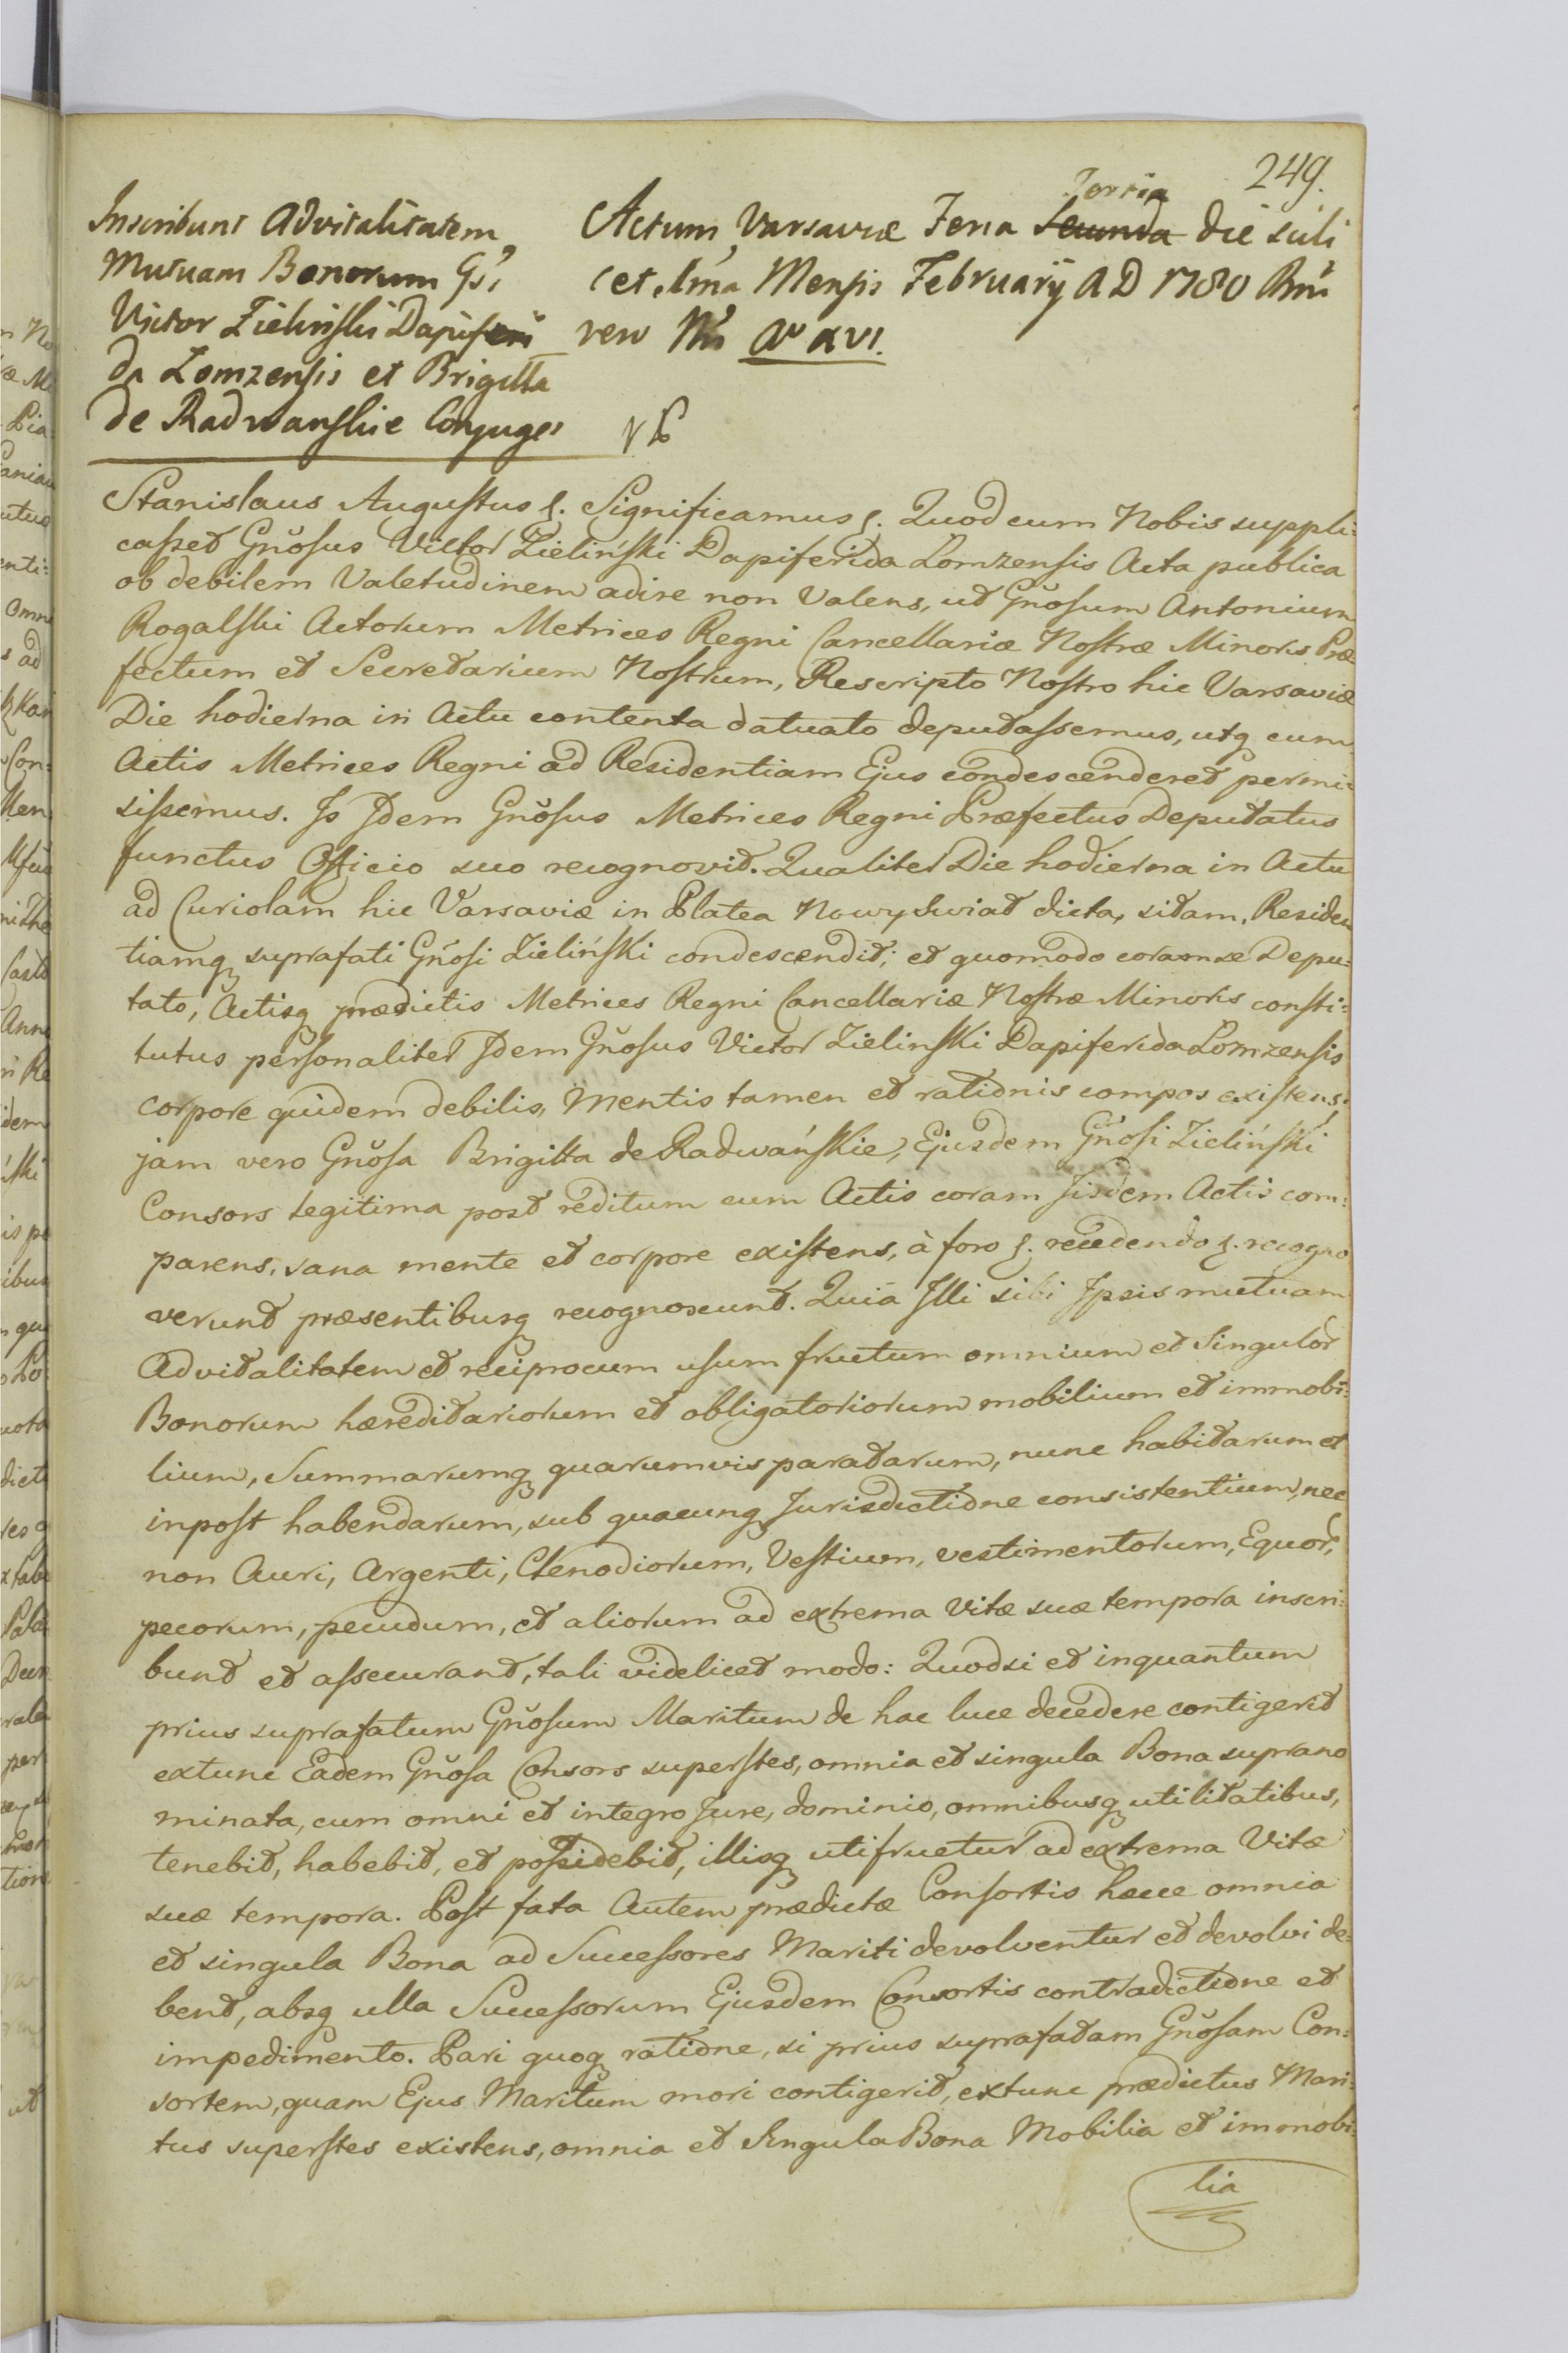 249.
Inscribunt Advitalitatem
Mutuam Bonorum Gsi
Victor Zielinski Dapiferi
da Lomzensis et Brigitta
de Radwanskie Conjuges
Actum Varsaviæ Feria Secunda Tertia die scili
cet 1ma Mensis Februarÿ AD 1780
vero XVI.
Stanislaus Augustus ſ. Significamus ſ. Quod cum Nobis suppli:
casset Gnŏsus Victor Zieliński Dapiferida Lomzensis Acta publica
ob debilem Valetudinem adire non Valens, ut Gnŏsum Antonium
Rogalski Actorum Metrices Regni Cancellariæ Nostræ Minoris Præ
fectum et Secretarium Nostrum, Rescripto Nostro hic Varsaviæ
Die hodierna in Actu contenta datuato deputassemus, utq cum
Actis Metrices Regni ad Residentiam Ejus condescenderet permi:
sissemus. Is Idem Gnŏsus Metrices Regni Præfectus Deputatus
functus Officio suo recognovit. Qualiter Die hodierna in Actu
ad Curiolam hic Varsaviæ in Platea Nowy Swiat dicta, sitam, Residen
tiamq suprafati Gnŏsi Zieliński condescendit; et quomodo coram se Depu:
tato, Actisq prædictis Metrices Regni Cancellariæ Nostræ Minoris consti:
tutus personaliter Idem Gnŏsus Victor Zielinski Dapiferida Lomzensis
corpore quidem debilis, Mentis tamen et rationis compos existens,
jam vero Gnŏsa Brigitta de Radwańskie, Ejusdem Gnŏsi Zieliński
Consors legitima post reditum cum Actis coram Iisdem Actis com:
parens, sana mente et corpore existens, à foro ſ. recedendo ſ. recogno
verunt præsentibusq recognoscunt. Quia Illi sibi Ipsis mutuam
Advitalitatem et reciprocum usum fructum omnium et Singulor
Bonorum hæreditariorum et obligatoriorum mobilium et immobi:
lium, Summarumq quarumvis paratarum, nunc habitarum et
inpost habendarum, sub quacunq Jurisdictione consistentium, nec
non Auri, Argenti, Clenodiorum, Vestium, vestimentorum, Equor,
pecorum, pecudum, et aliorum ad extrema Vitæ suæ tempora inscri:
bunt et assecurant, tali videlicet modo: Quodsi et inquantum
prius suprafatum Gnŏsum Maritum de hac luce decedere contigerit
extunc Eadem Gnŏsa Consors superstes, omnia et singula Bona suprano
minata, cum omni et integro Jure, dominio, omnibusq utilitatibus,
tenebit, habebit, et possidebit, illisq utifruetur ad extrema Vitæ
suæ tempora. Post fata Autem prædictæ Consortis hæce omnia
et singula Bona ad Successores Mariti devolventur et devolvi de:
bent, absq ulla Successorum Ejusdem Consortis contradictione et
impedimento. Pari quoq ratione, si prius suprafatam Gnŏsam Con:
sortem, quam Ejus Maritum mori contigerit, extunc prædictus Mari:
tus superstes existens, omnia et Singula Bona Mobilia et immobi:
lia